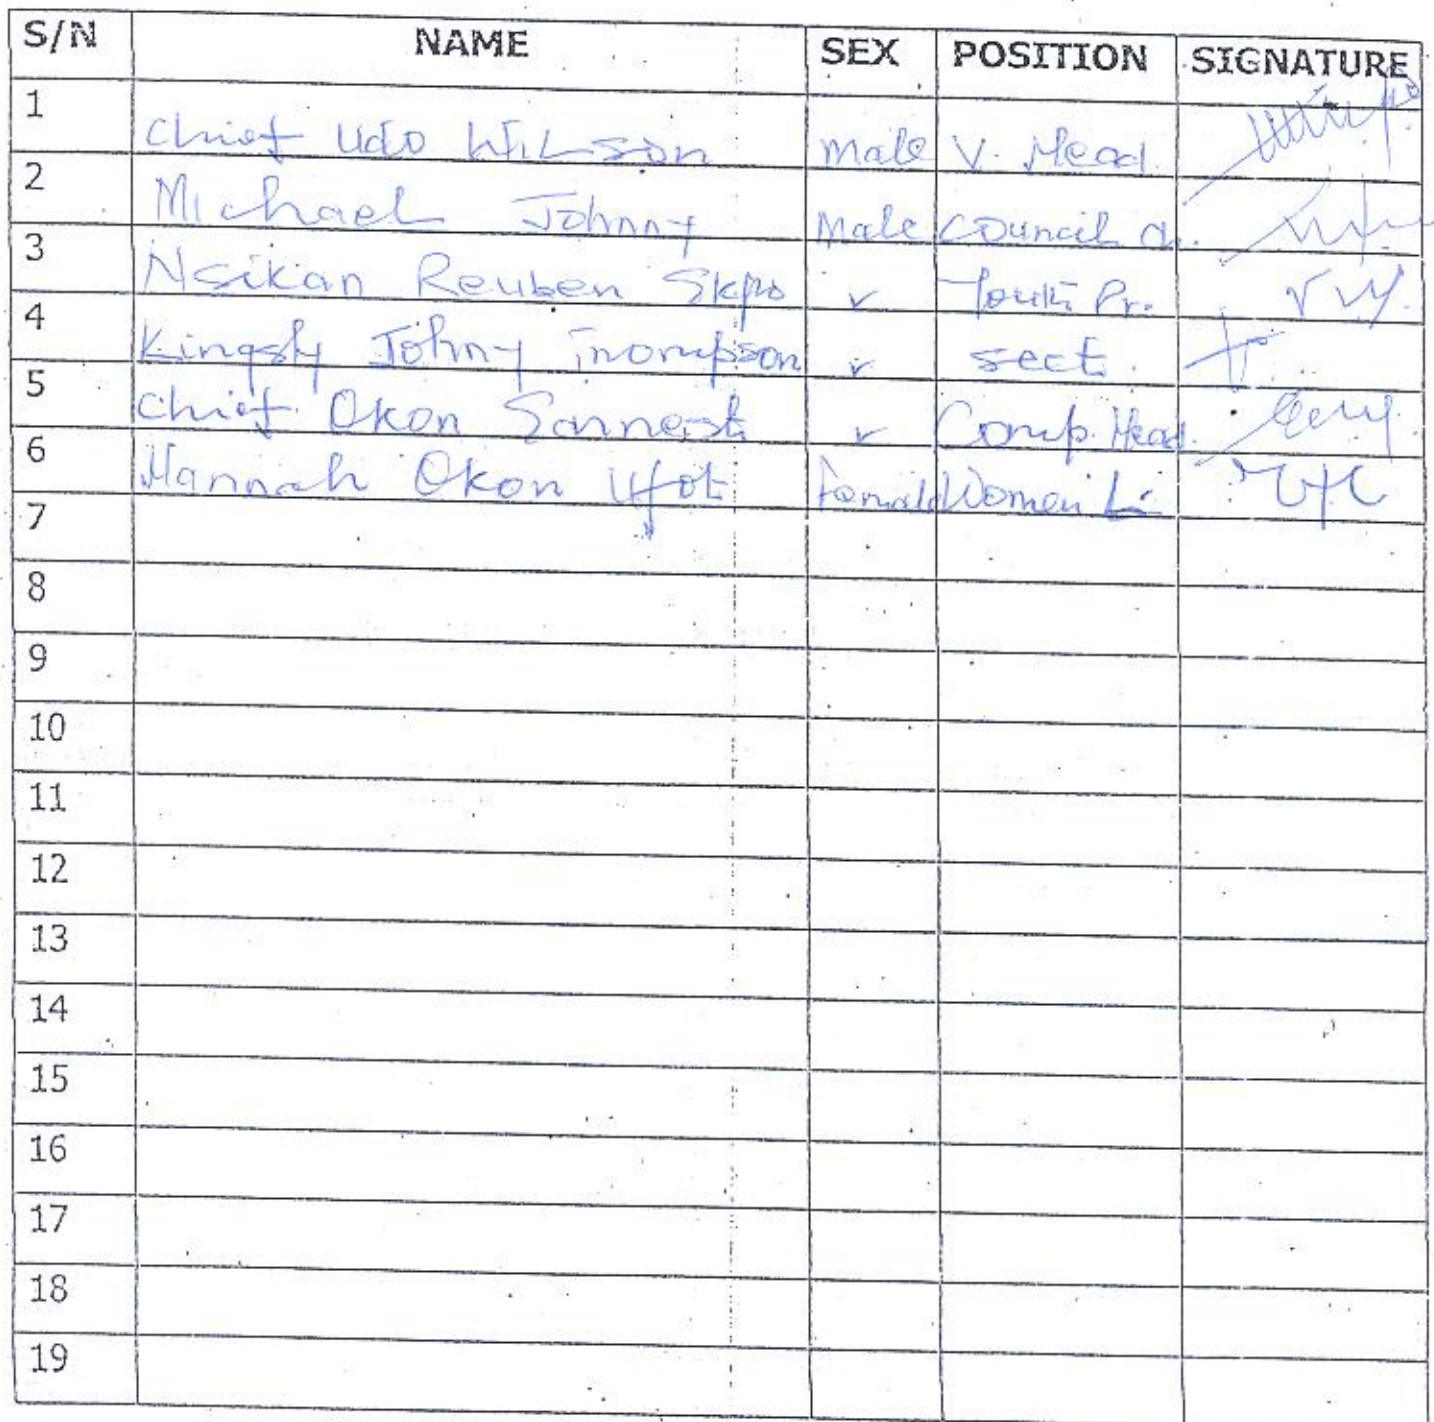 S/N NAME SEX POSITION SIGNATURE
1 Chief Udo Wilson Male V. Head
2 Michael Johnny Male Council
3 Nsikan Reuben Ekpo v Youth Pr.
4 Kingsly Johny Thompson v sect.
5 Chief Okon v Comp. Head.
6 Hannah Okon Ufot Female Women
7
8
9
10
11
12
13
14
15
16
17
18
19